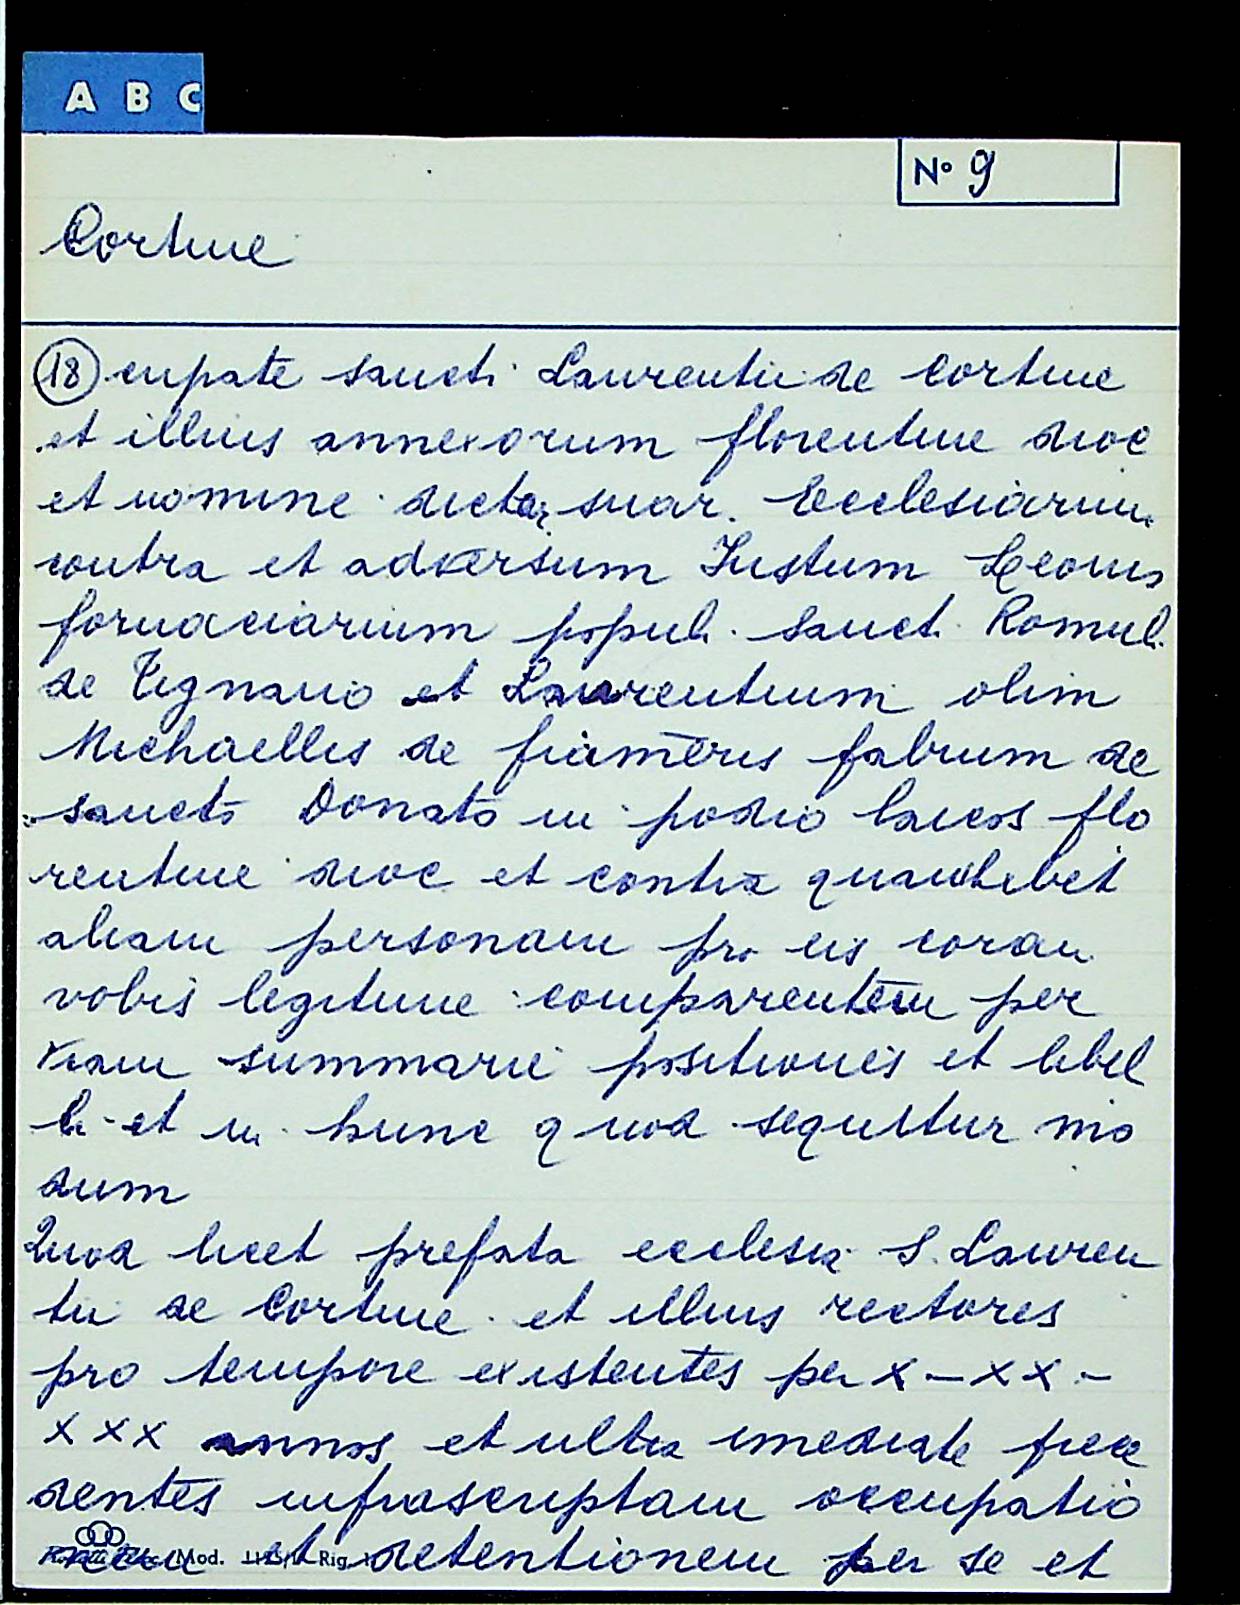 A B C
N° 9
Cortine
18 cupate sancti Laurentii de Cortine
et illius annexorum florentine dioc
et nomine dictar suar. Ecclesiarum
contra et adversum Iustum Leonis
fornaciarium populi sancti Romuli
de Tignano et Laurentium olim
Michaellis de fiam̄eris fabrum de
sancto Donato in podio laicos flo
rentine dioc et contra quamlibet
aliam personam pro eis coram
vobis legitime comparentem per
viam summarie positionis et libel
li et in hunc quod sequitur mo
dum
Quod licet prefata ecclesia S. Lauren
tii de Cortine et illius rectores
pro tempore existentes per x - xx -
xxx annos et ultra imediate prece
dentes infrascriptam occupatio
nem et detentionem per se et
Mod. Rig.